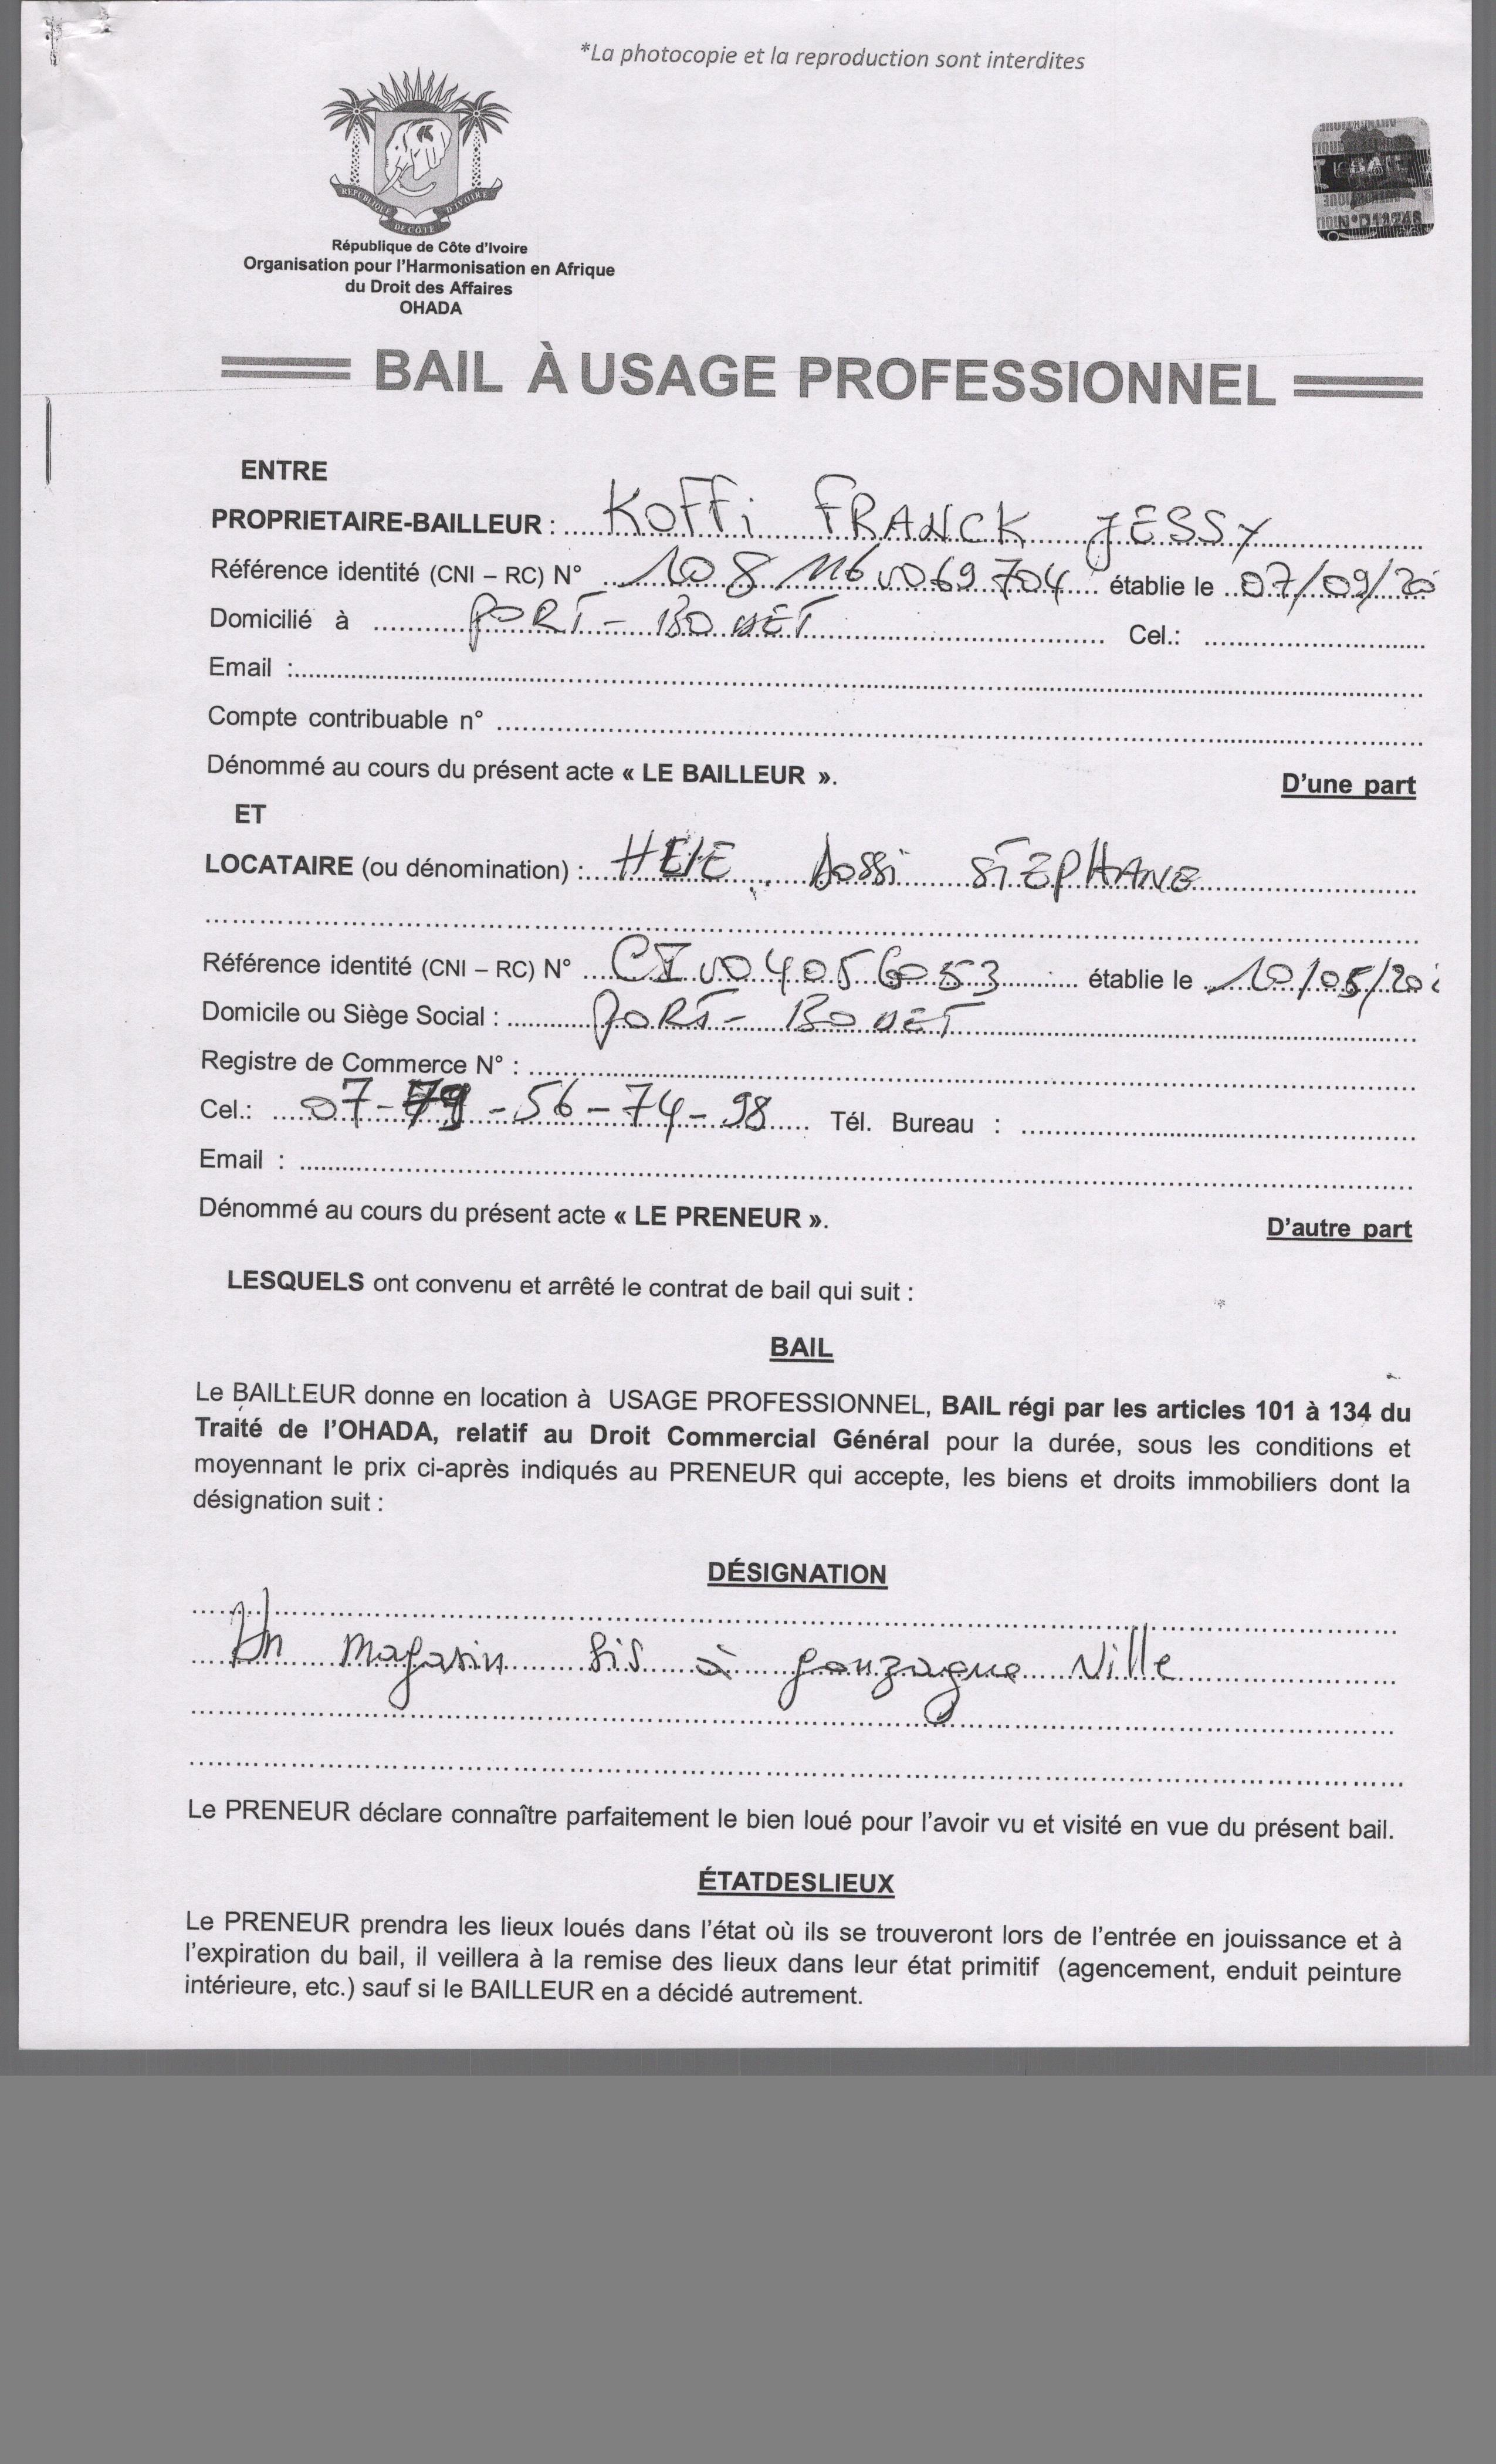 *La photocopie et la reproduction sont interdites
RÉPUBLIQUE DE CÔTE D'IVOIRE
République de Côte d'Ivoire
Organisation pour l'Harmonisation en Afrique
du Droit des Affaires
OHADA
BAIL À USAGE PROFESSIONNEL
ENTRE
PROPRIETAIRE-BAILLEUR : KOFFi FRANCK JESSY
Référence identité (CNI – RC) N° établie le 07/09/20
Domicilié à PORT-BOUET Cel.:
Email :
Compte contribuable n°
Dénommé au cours du présent acte « LE BAILLEUR ».
D'une part
ET
LOCATAIRE (ou dénomination) : STEPHANE
Référence identité (CNI – RC) N° CI004056053 établie le 10/05/20
Domicile ou Siège Social : PORT-BOUET
Registre de Commerce N° :
Cel.: 07-79-56-74-98 Tél. Bureau :
Email :
Dénommé au cours du présent acte « LE PRENEUR ».
D'autre part
LESQUELS ont convenu et arrêté le contrat de bail qui suit :
BAIL
Le BAILLEUR donne en location à USAGE PROFESSIONNEL, BAIL régi par les articles 101 à 134 du
Traité de l'OHADA, relatif au Droit Commercial Général pour la durée, sous les conditions et
moyennant le prix ci-après indiqués au PRENEUR qui accepte, les biens et droits immobiliers dont la
désignation suit :
DÉSIGNATION
Un magasin sis à gonzague ville
Le PRENEUR déclare connaître parfaitement le bien loué pour l'avoir vu et visité en vue du présent bail.
ÉTATDESLIEUX
Le PRENEUR prendra les lieux loués dans l'état où ils se trouveront lors de l'entrée en jouissance et à
l'expiration du bail, il veillera à la remise des lieux dans leur état primitif (agencement, enduit peinture
intérieure, etc.) sauf si le BAILLEUR en a décidé autrement.